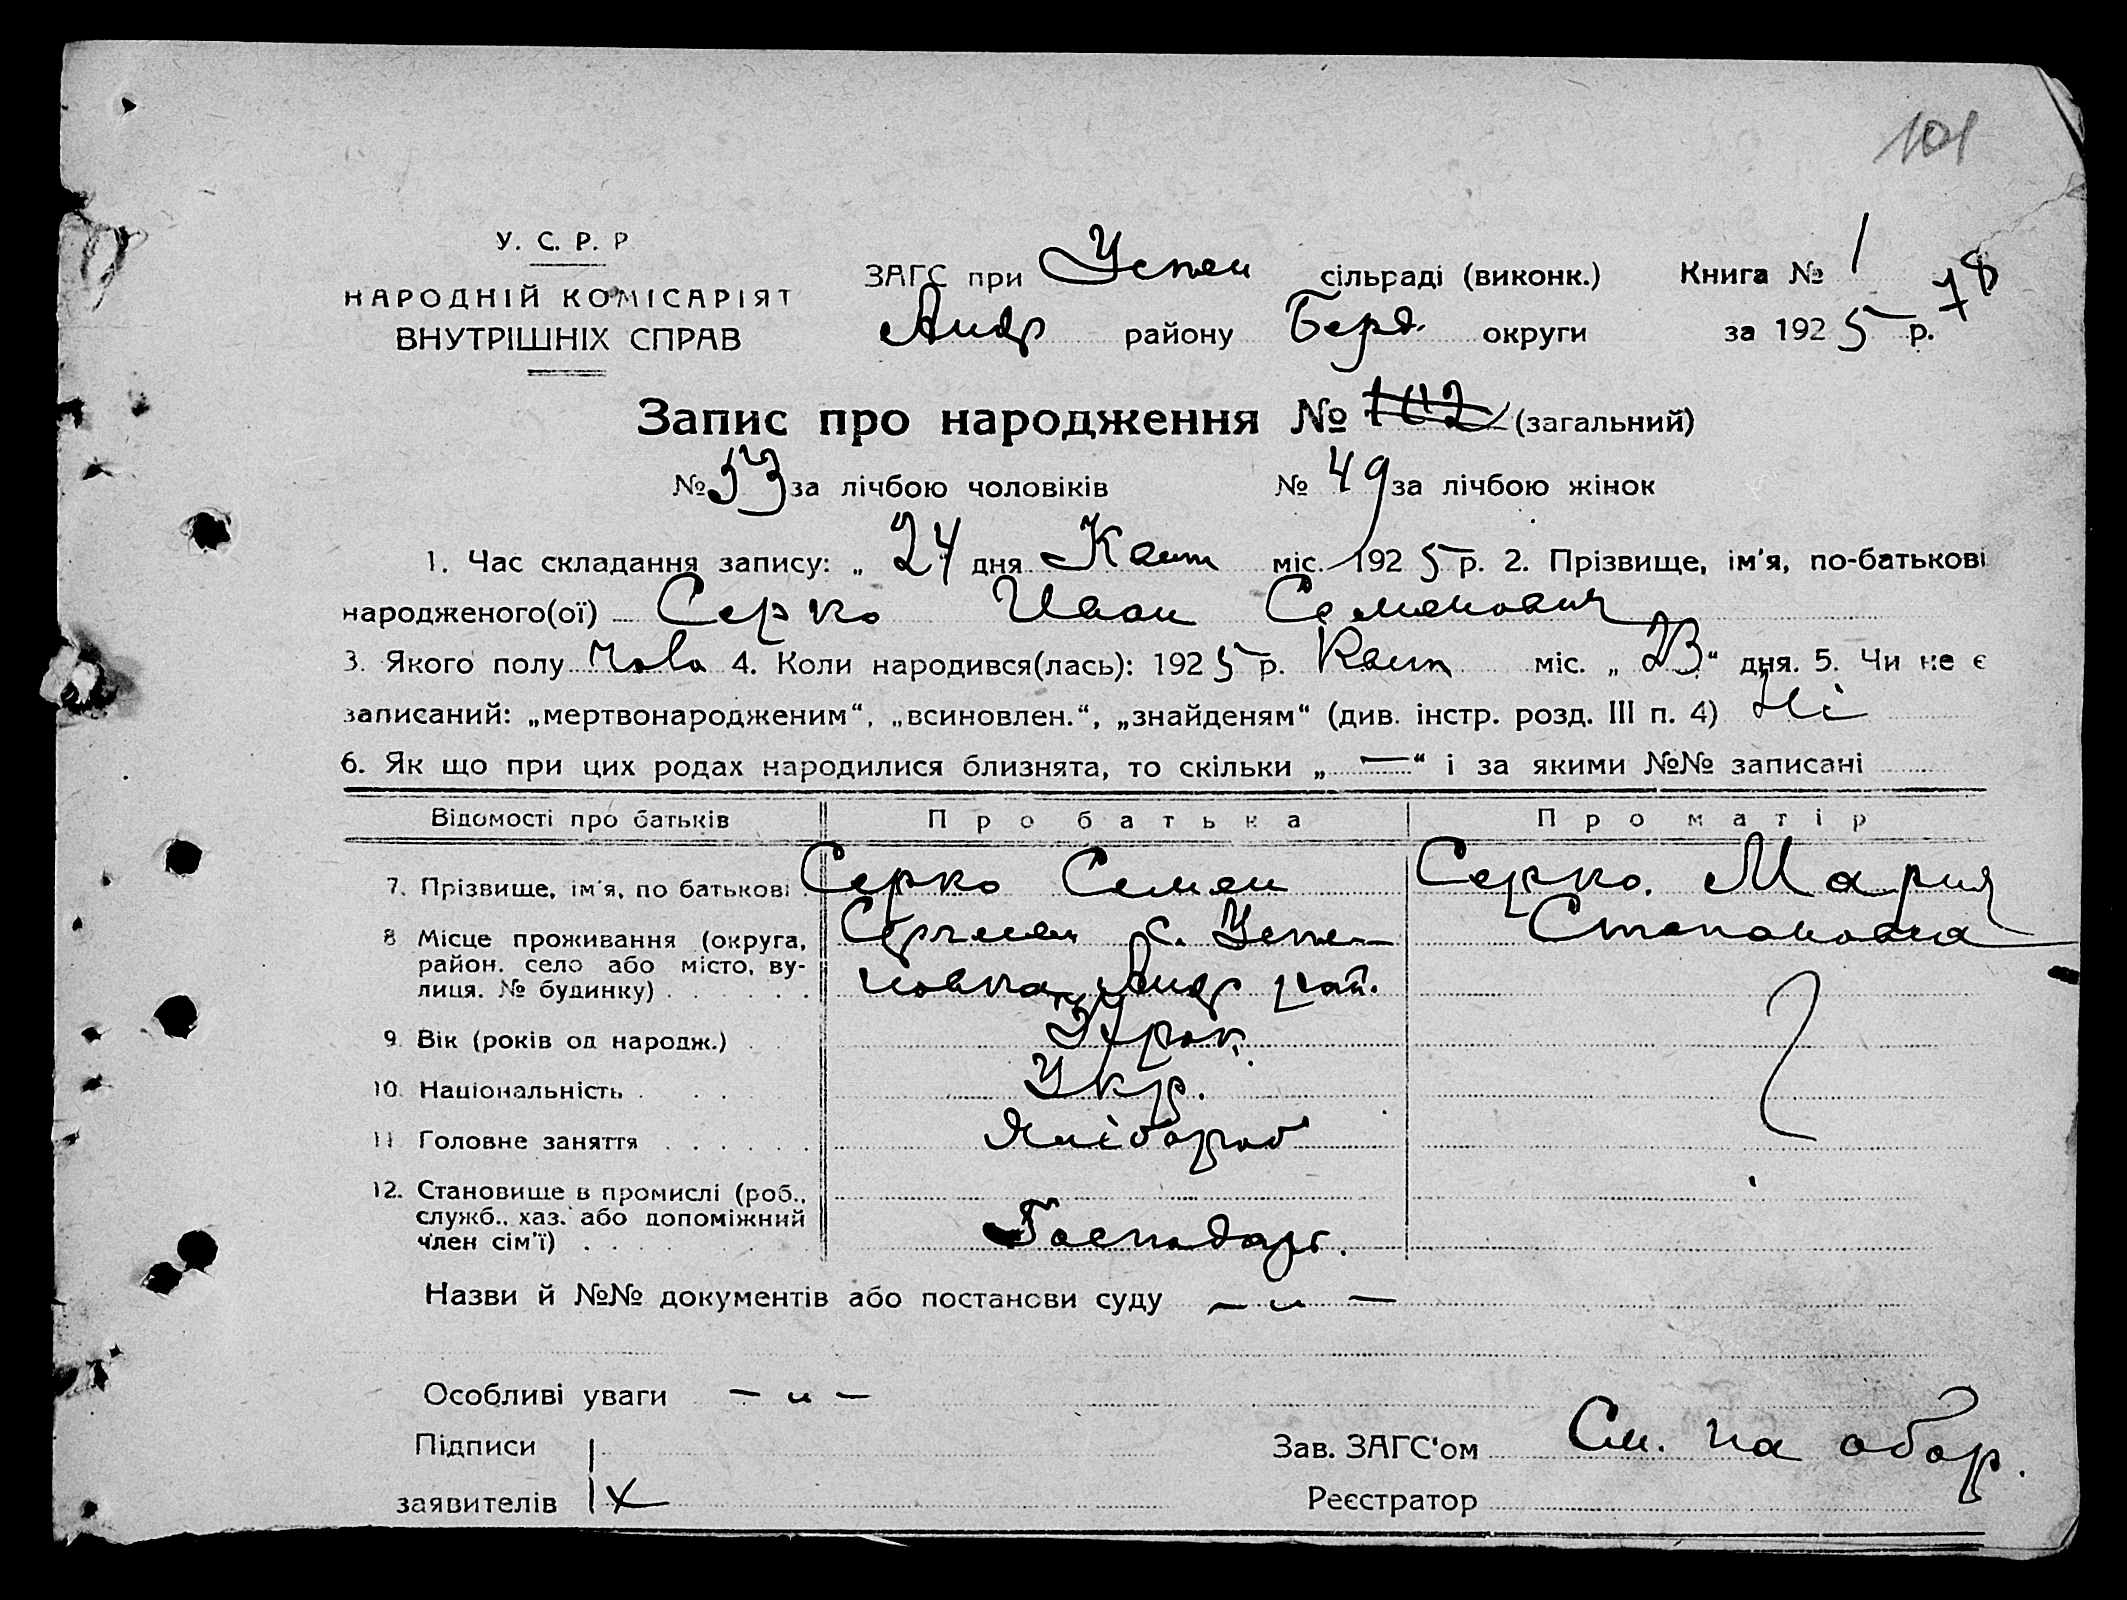 101
У. С. Р. Р
НАРОДНІЙ КОМІСАРІЯТ
ВНУТРІШНІХ СПРАВ
ЗАГС при Успен сільраді (виконк.) Книга № 1
78
Андр району Берд. округи за 1925 р.
Запис про народження № 102 (загальний)
№ 53 за лічбою чоловіків № 49 за лічбою жінок
1. Час складання запису: „ 24 дня міс. 1925 р. 2. Прізвище, ім'я, по-батькові
народженого(ої) Серко Иван Семенович
3. Якого полу Чолов 4. Коли народився(лась): 1925 р. міс. „ 23 “ дня. 5. Чи не є
записаний: „мертвонародженим“, „всиновлен.“, „знайденям“ (див. інстр. розд. III п. 4) Ні
6. Як що при цих родах народилися близнята, то скільки „ — “ і за якими №№ записані
Відомості про батьків Про батька Про матір
7. Прізвище, ім'я, по батькові Серко Семен Серко. Мария
8 Місце проживання (округа, район. село або місто, вулиця. № будинку) с. Успе- Степановна
новка, Андр рай.
9. Вік (років од народж.) рок.
10. Національність Укр.
11 Головне заняття Хлібороб
12. Становище в промислі (роб., служб., хаз. або допоміжний член сім'ї) Господарь.
Назви й №№ документів або постанови суду — „ —
Особливі уваги — „ —
Підписи
заявителів
Зав. ЗАГС'ом См. на обор.
Реєстратор